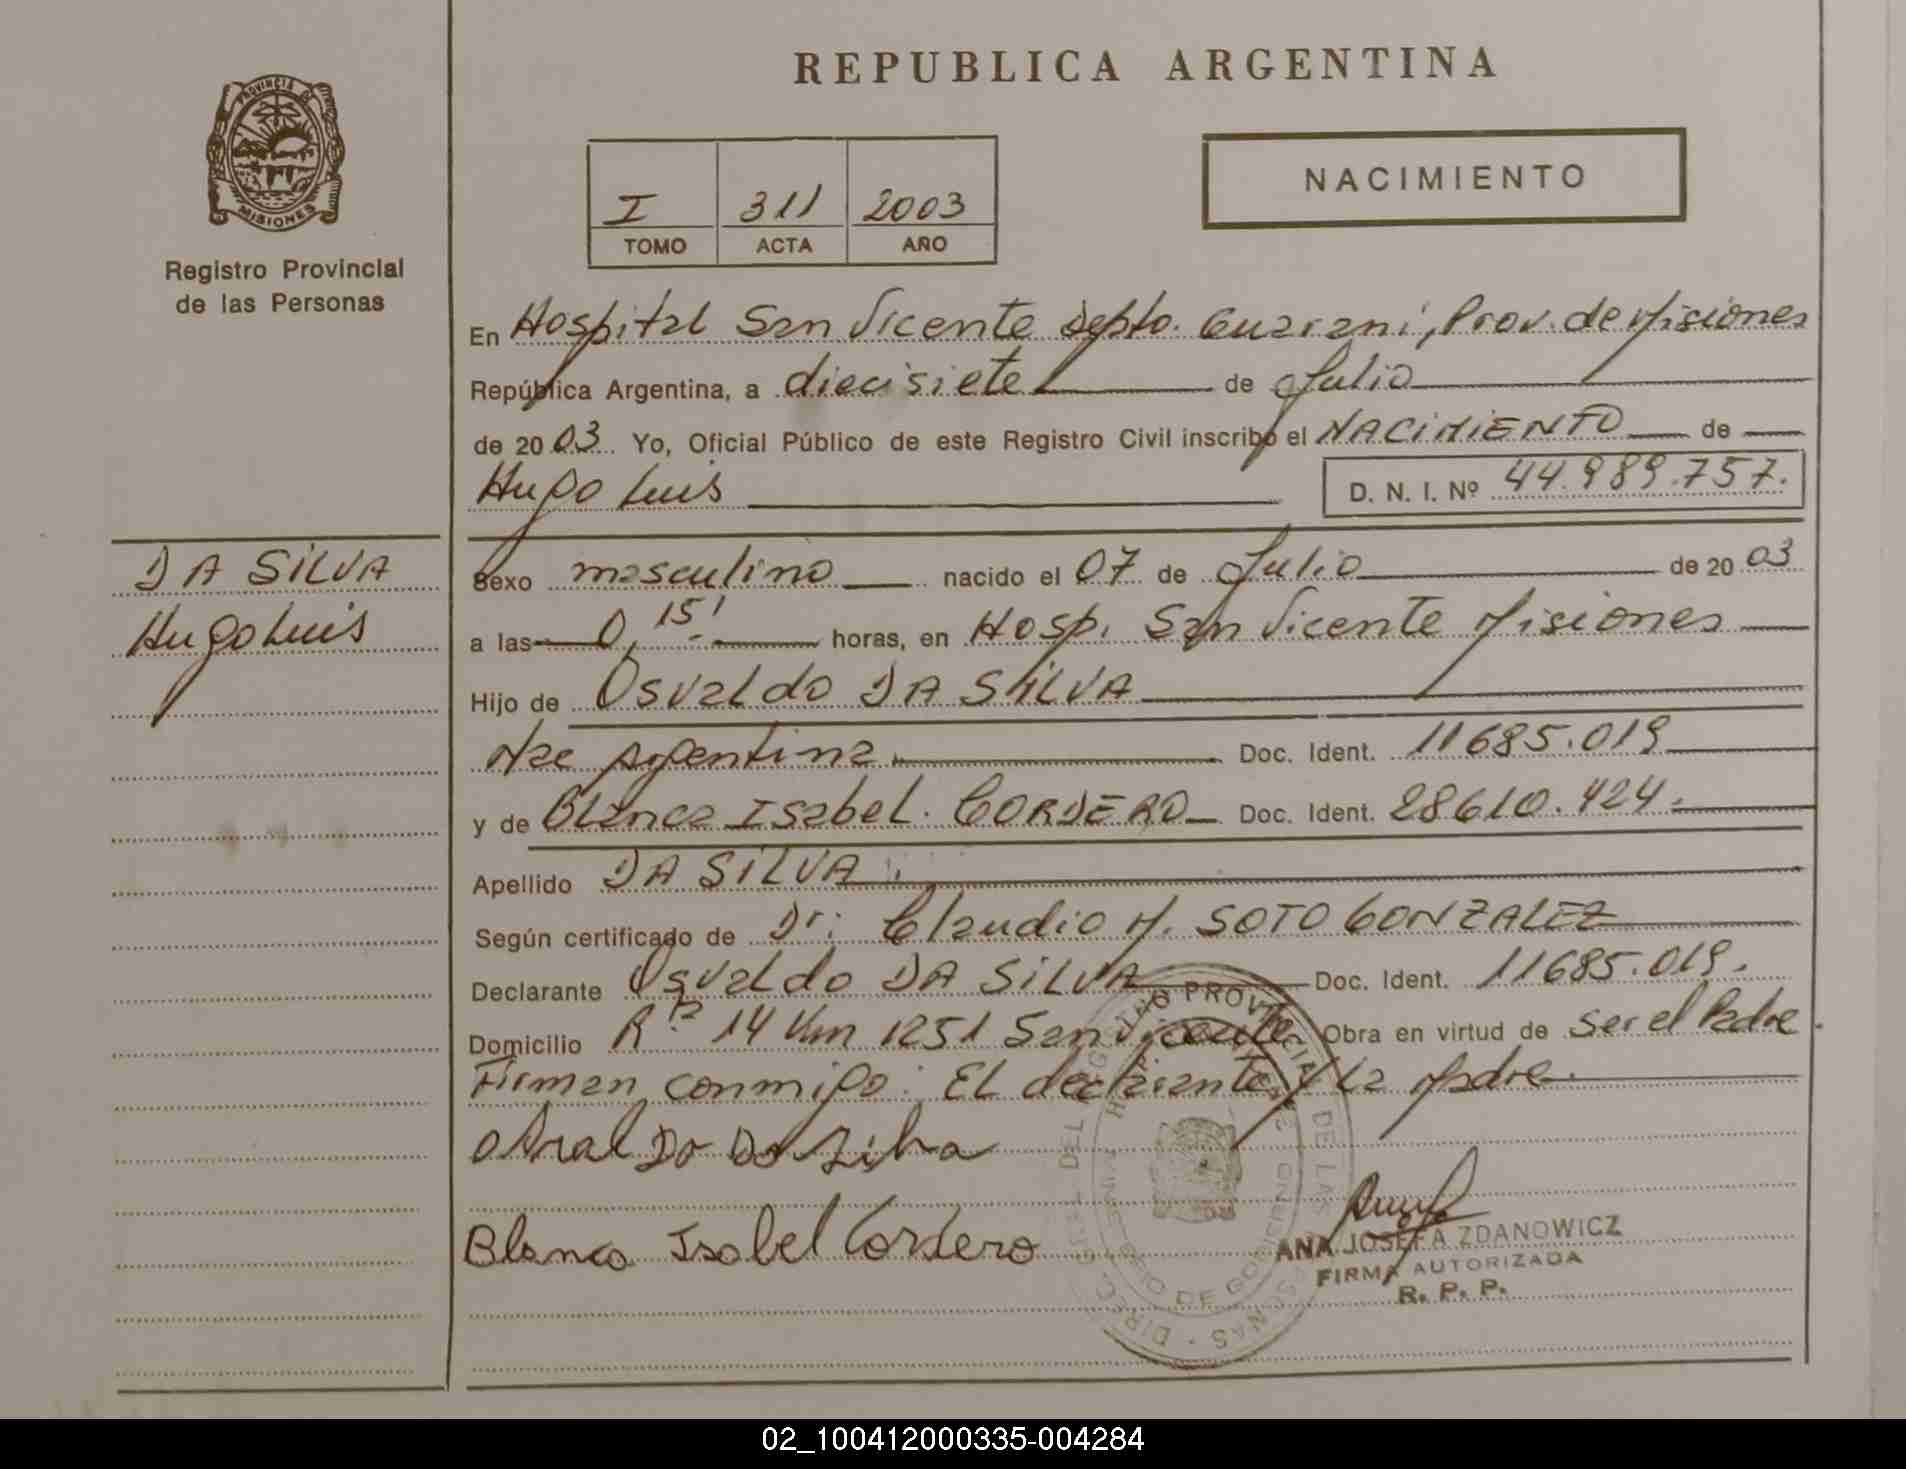 PROVINCIA DE
MISIONES
Registro Provincial
de las Personas
DA SILVA
Hugo Luis
REPUBLICA ARGENTINA
I 311 2003
TOMO ACTA AÑO
NACIMIENTO
En Hospital San Vicente Depto. Guarani, Prov. de Misiones
República Argentina, a diecisiete de Julio
de 2003 Yo, Oficial Público de este Registro Civil inscribo el NACIMIENTO de
Hugo Luis D. N. I. Nº 44.989.757.
Sexo masculino nacido el 07 de Julio de 2003
a las 0,15' horas, en Hosp. San Vicente Misiones
Hijo de Osvaldo DA SILVA
Nac Argentina Doc. Ident. 11685.019
y de Blanca Isabel. CORDERO Doc. Ident. 28610.424.
Apellido DA SILVA.
Según certificado de Dr. Claudio M. SOTO GONZALEZ
Declarante Osvaldo DA SILVA Doc. Ident. 11685.019.
Domicilio R. 14 Km 1251 San Vicente Obra en virtud de Ser el Padre.
Firman conmigo: El declarante y La Madre.
Blanca Isabel Cordero
ANA JOSEFA ZDANOWICZ
FIRMA AUTORIZADA
R. P. P.
02_100412000335-004284